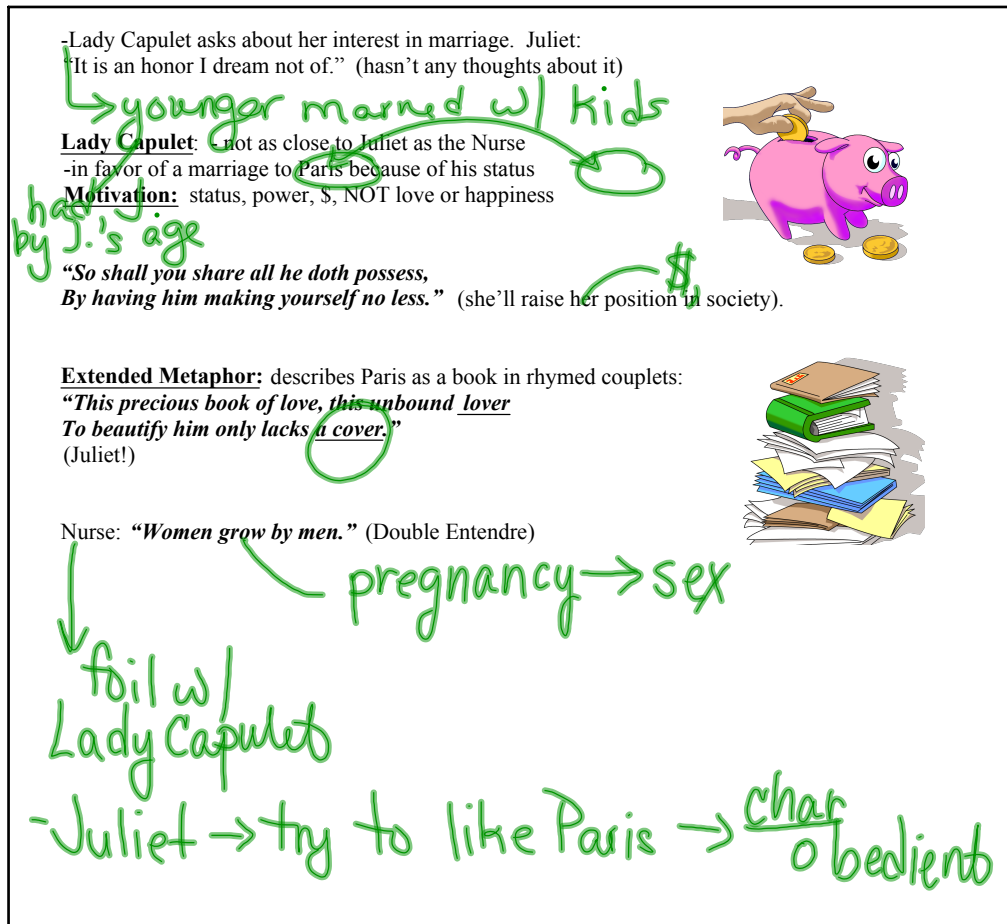 -Lady Capulet asks about her interest in marriage.  Juliet:
“It is an honor I dream not of.”  (hasn’t any thoughts about it)
younger married w/ kids
Lady Capulet:  - not as close to Juliet as the Nurse
-in favor of a marriage to Paris because of his status
Motivation:  status, power, $, NOT love or happiness
had J.
by J.'s age
“So shall you share all he doth possess,
$
By having him making yourself no less.”  (she’ll raise her position in society).
Extended Metaphor: describes Paris as a book in rhymed couplets:
“This precious book of love, this unbound lover
To beautify him only lacks a cover.”
(Juliet!)
Nurse: “Women grow by men.” (Double Entendre)
pregnancy → sex
foil w/
Lady Capulet
-Juliet → try to like Paris → char
obedient